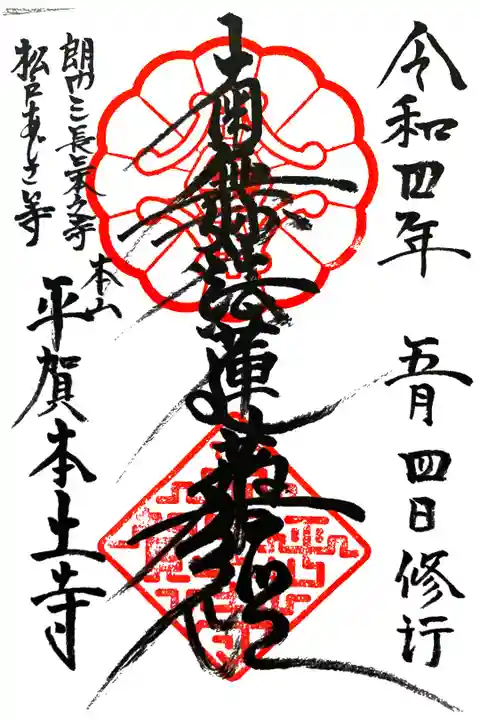 令和四年 五月四日修行
南無妙法蓮華経
本山
平賀本土寺
朗門三長三本之寺
松戸あじさい寺